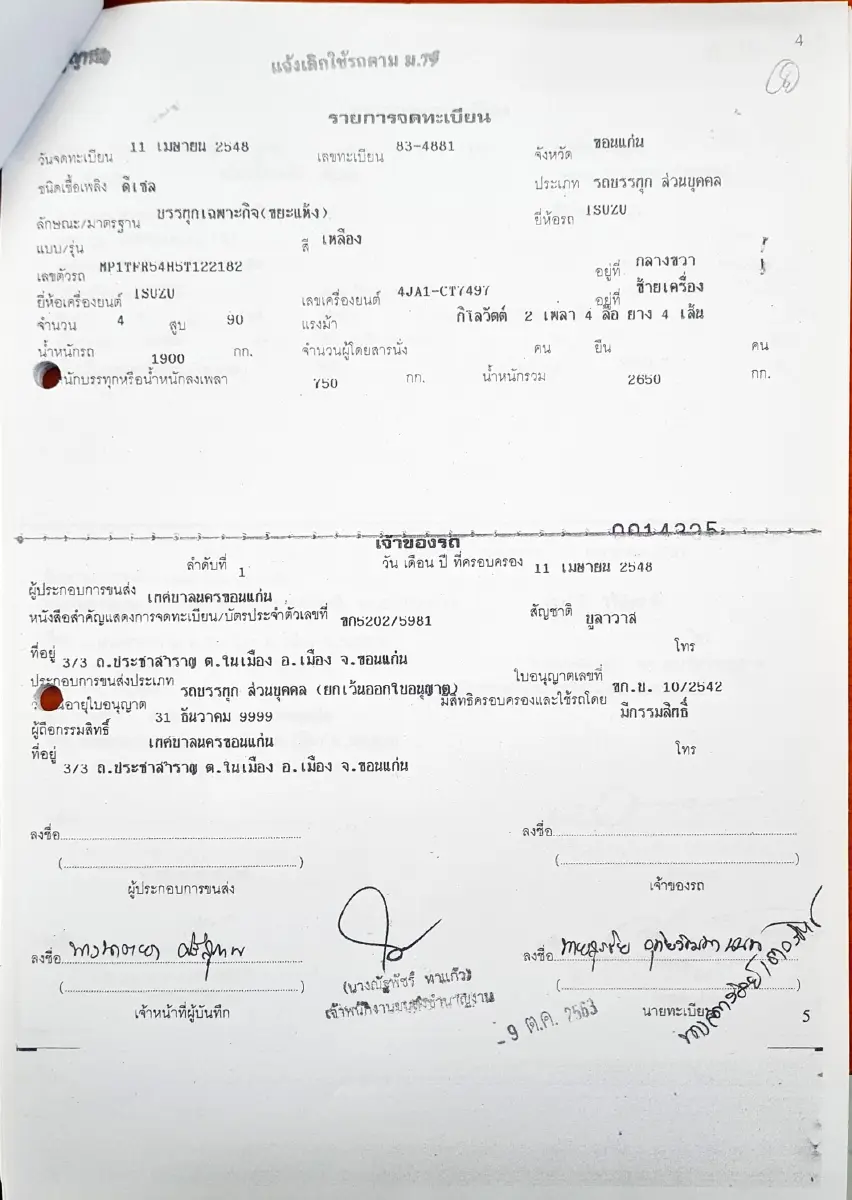 4
แจ้งเลิกใช้รถตาม ม.79
รายการจดทะเบียน
วันจดทะเบียน 11 เมษายน 2548 เลขทะเบียน 83-4881 จังหวัด ขอนแก่น
ชนิดเชื้อเพลิง ดีเซล ประเภท รถบรรทุก ส่วนบุคคล
ลักษณะ/มาตรฐาน บรรทุกเฉพาะกิจ(ขยะแห้ง) ยี่ห้อรถ ISUZU
แบบ/รุ่น สี เหลือง
เลขตัวรถ MP1TFR54H5T122182 อยู่ที่ กลางขวา
ยี่ห้อเครื่องยนต์ ISUZU เลขเครื่องยนต์ 4JA1-CT7497 อยู่ที่ ซ้ายเครื่อง
จำนวน 4 สูบ 90 แรงม้า กิโลวัตต์ 2 เพลา 4 ล้อ ยาง 4 เส้น
น้ำหนักรถ 1900 กก. จำนวนผู้โดยสารนั่ง คน ยืน คน
นักบรรทุกหรือน้ำหนักลงเพลา 750 กก. น้ำหนักรวม 2650 กก.
0014325
เจ้าของรถ
ลำดับที่ 1 วัน เดือน ปี ที่ครอบครอง 11 เมษายน 2548
ผู้ประกอบการขนส่ง เทศบาลนครขอนแก่น
หนังสือสำคัญแสดงการจดทะเบียน/บัตรประจำตัวเลขที่ ขก5202/5981 สัญชาติ
ที่อยู่ 3/3 ถ.ประชาสำราญ ต.ในเมือง อ.เมือง จ.ขอนแก่น โทร
ประกอบการขนส่งประเภท รถบรรทุก ส่วนบุคคล (ยกเว้นออกใบอนุญาต) ใบอนุญาตเลขที่ ขก.บ. 10/2542
อายุใบอนุญาต 31 ธันวาคม 9999 มีสิทธิครอบครองและใช้รถโดย มีกรรมสิทธิ์
ผู้ถือกรรมสิทธิ์ เทศบาลนครขอนแก่น
ที่อยู่ 3/3 ถ.ประชาสำราญ ต.ในเมือง อ.เมือง จ.ขอนแก่น โทร
ลงชื่อ ลงชื่อ
( ) ( )
ผู้ประกอบการขนส่ง เจ้าของรถ
ลงชื่อ ลงชื่อ
( ) (นางณัฐพัชร์ พาแก้ว) ( )
เจ้าหน้าที่ผู้บันทึก เจ้าพนักงานขนส่งชำนาญงาน นายทะเบียน
- 9 ต.ค. 2563
5